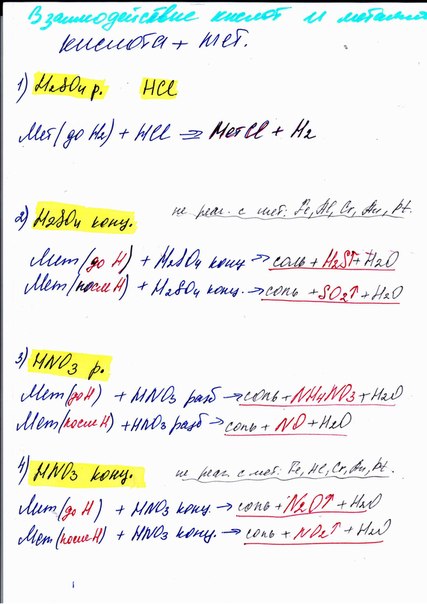 Взаимодействие кислот и металлов
кислота + мет.
1) H2SO4 р. HCl
Мет(до H2) + HCl => МетCl + H2
2) H2SO4 конц. не реаг. с мет: Fe, Al, Cr, Au, Pt.
Мет(до H) + H2SO4 конц → соль + H2S↑ + H2O
Мет(после H) + H2SO4 конц. → соль + SO2↑ + H2O
3) HNO3 р.
Мет(до H) + HNO3 разб → соль + NH4NO3 + H2O
Мет(после H) + HNO3 разб → соль + NO + H2O
4) HNO3 конц. не реаг. с мет: Fe, Al, Cr, Au, Pt.
Мет(до H) + HNO3 конц → соль + N2O↑ + H2O
Мет(после H) + HNO3 конц. → соль + NO2↑ + H2O